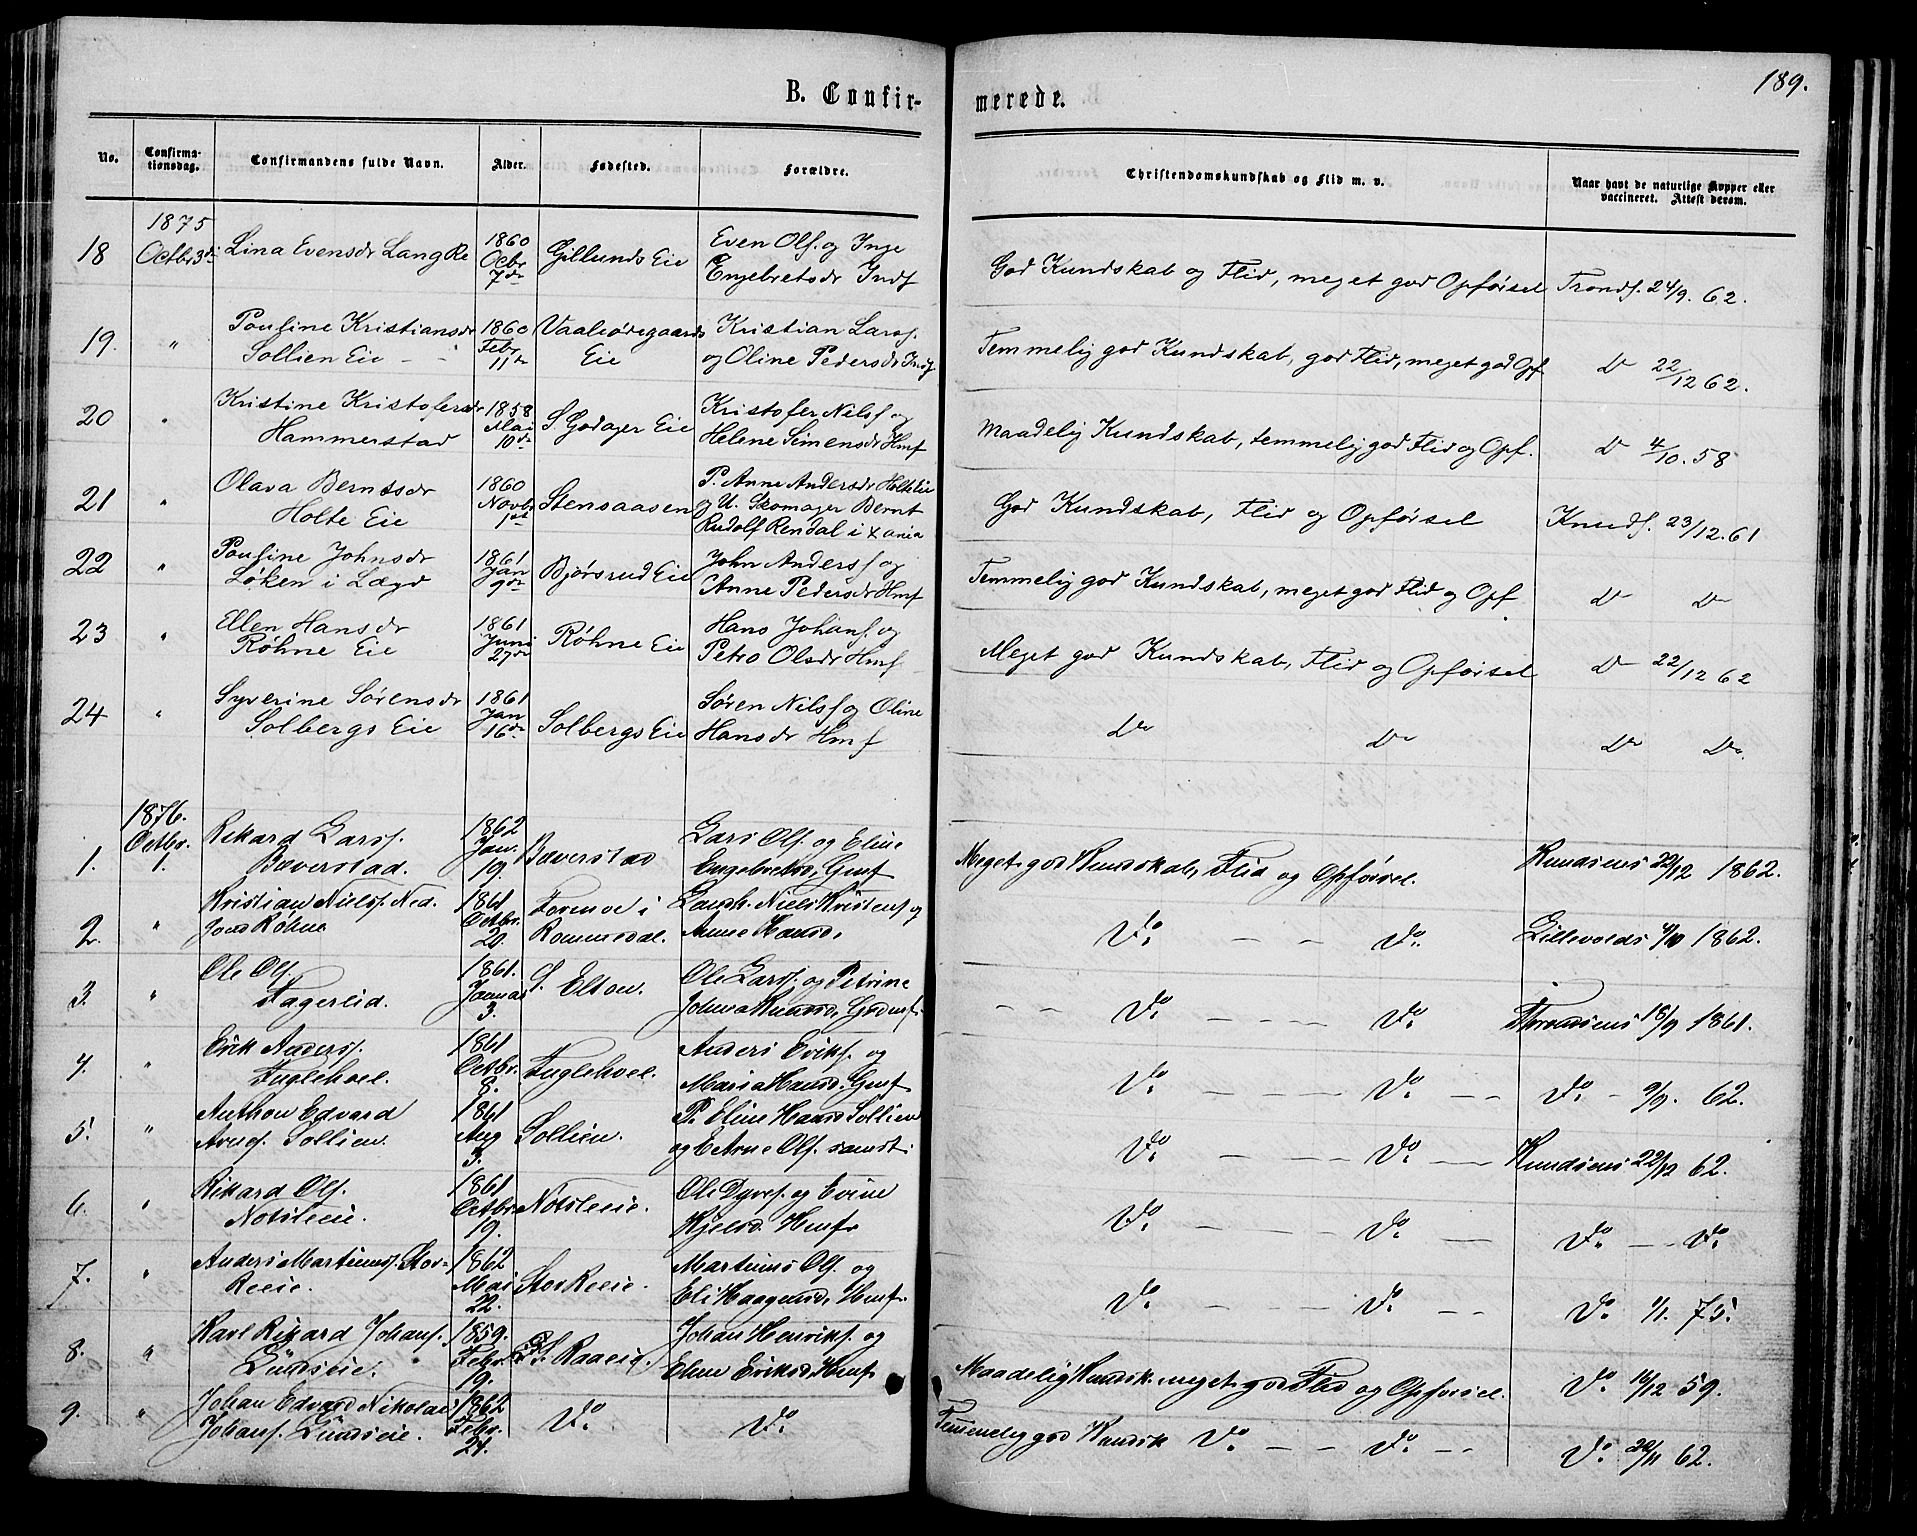 189.
B. Confir-
merede.
No.
Confirma-
tionsdag.
Confirmandens fulde Navn.
Alder.
Fødested.
Forældre.
Christendomskundskab og Flid m. v.
Naar havt de naturlige Kopper eller
vaccineret. Attest derom.
1875
18 Octbr 3die Lina Evensdr LangRe 1860 Ocbr 7de Gillunds Eie Even Ols. og Inge
Engebretsdr Indf God Kundskab og Flid, meget god Opførsel Tronds. 24/9. 62.
19. " Pauline Kristiansdr 1860 Febr 11te Vaaleødegaards Kristian Lars.
Sollien Eie Eie og Oline Pedersdr Indf Temmelig god Kundskab, god Flid, meget god Opf Do 22/12 62.
20 " Kristine Kristofersdr 1858 Mai 10de S. Godager Eie Kristofer Nilsf og
Hammerstad Helene Simensdr Hmf Maadelig Kundskab, temmelig god Flid og Opf. Do 4/10. 58
21 " Olava Berntsdr 1860 Novbr 1st Stensaasen P. Anne Andersdr Holte Eie
Holte Eie og U. Skomager Bernt
Rudolf Rendal i Xania God Kundskab, Flid og Opførsel Knuds. 23/12. 61
22 " Pauline Johnsdr 1861 Jan 9de Bjørsrud Eie John Andersf og
Løken i Lægd Anne Pedersdr Hmf Temmelig god Kundskab, meget god Flid og Opf. Do Do
23 " Ellen Hansdr 1861 Juni 27de Røhne Eie Hans Johans. og
Røhne Eie Petro Olsdr Hmf Meget god Kundskab, Flid og Opførsel Do 22/12 62
24 " Syverine Sørensdr 1861 Jan 16de Solbergs Eie Søren Nilsf og Oline
Solbergs Eie Hansdr Hmf Do Do Do Do.
1876.
1. Octbr. 1. Rikard Larsf. 1862 Jan. 19. Bæverstad Lars Olf. og Eline
Bæverstad. Engebretsd. Gmf Meget god Kundskab, Flid og Opførsel. Knudsens 22/12 1862.
2. " Kristian Nielsf. Ned. 1861 Octbr. 20. i Romsdal. Niels Kristens og
Røhne Anne Hansd. Do. — — Do. Lillevolds 4/10 1862.
3. " Ole Olf. 1861. Januar 3. S. Elton. Ole Larsf. og Petrine
Fagerlid. Johna Knutsd. Do. Do. Throndsens 18/9 1861.
4. " Erik Andersf. 1861 Octbr. 8. Fuglehoel. Anders Eriksf. og
Fuglehoel. Maria Hansd. Gmf Do. Do. Do. - 9/9. 62.
5. " Anthon Edvard 1861 Aug 3. Sollien. P. Eline Hansd. Sollien
Arnef. Sollien. og E Arne Olf. Do. Do. Knudsens 22/12 62.
6. " Rikard Olf. 1861 Octbr 19. Notsleeie. Ole Dyref. og Eline
Notsleeie. Kjelsd. Hmf. Do. Do. Do. — Do.
7. " Anders Martinusf. Stor- 1862 Mai 22. Stor Reeie. Martinus Olf. og
Reeie. Eli Haagensd. Hmf. Do. Do. Do. 1/1. 75.
8. " Karl Rikard Johansf. 1859. Febr. 19. S. Raaeie. Johan Henriksf. og
Lundseie. Eline Eriksd. Hmf. Maadelig Kundsk. meget god Flid og Opførsel. Do. 16/12 59.
9. " Johan Edvard Nikolai 1862 Febr. 24. Do. Do.
Johansf. Lundseie. Temmelig god Kundsk Do. Do. Do. 20/11 62.